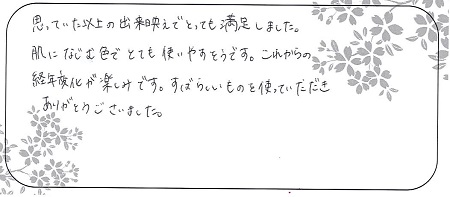 思っていた以上の出来映えでとっても満足しました。
肌になじむ色でとても使いやすそうです。これからの
経年変化が楽しみです。すばらしいものを使っていただき
ありがとうございました。